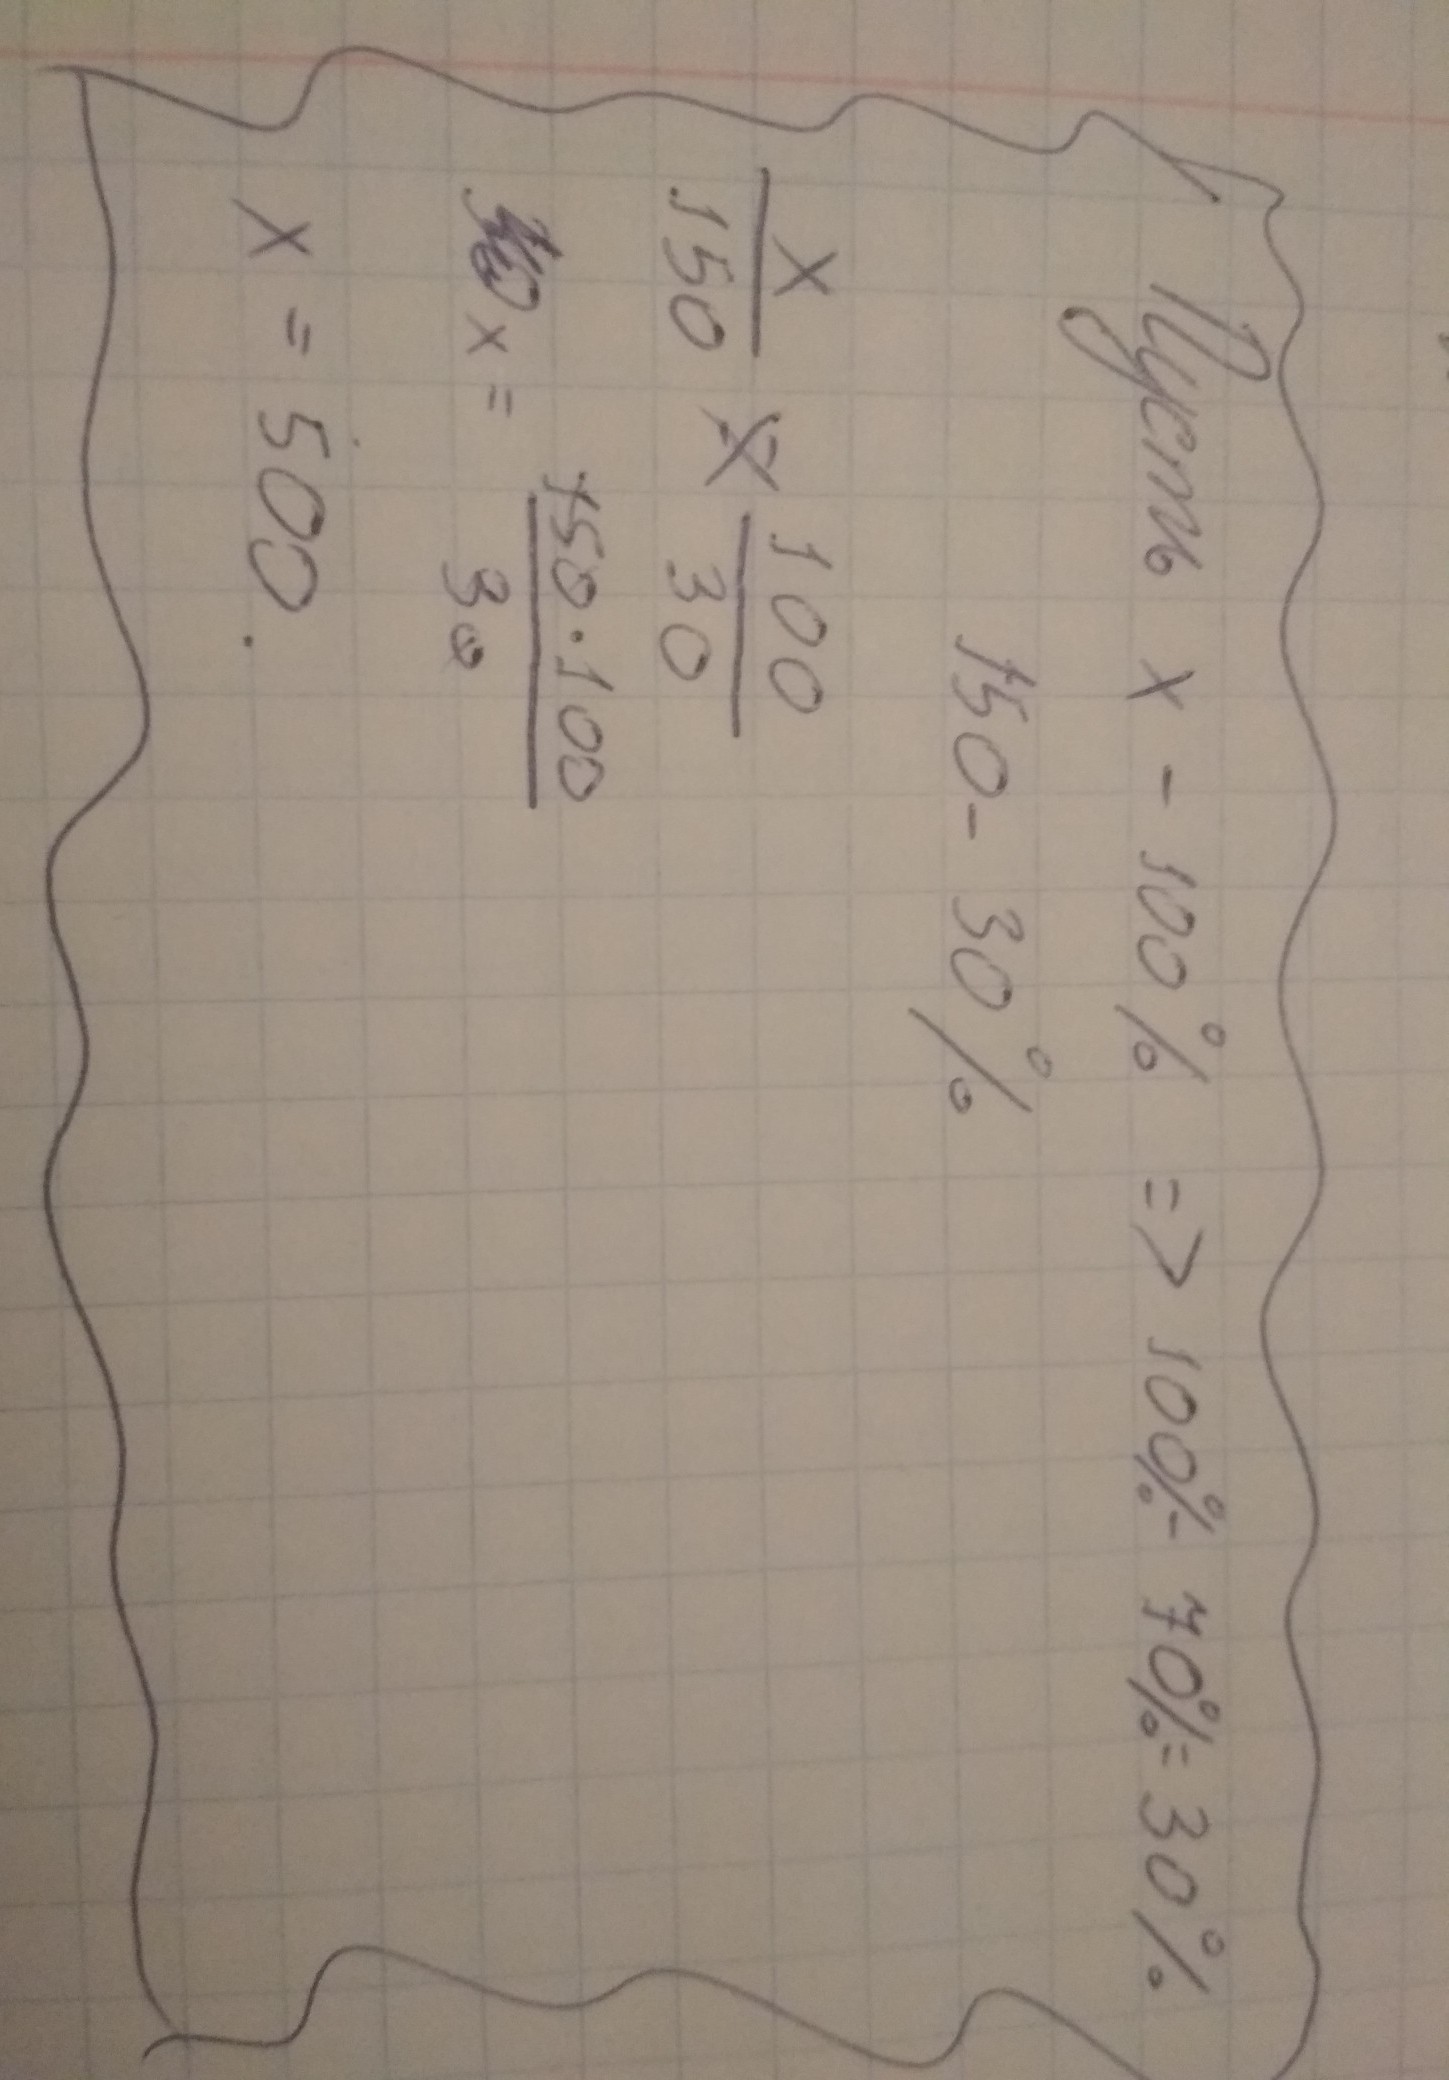 Пусть x - 100% => 100% - 70% = 30%
150 - 30%
x/150 = 100/30
x = 150·100/30
x = 500.